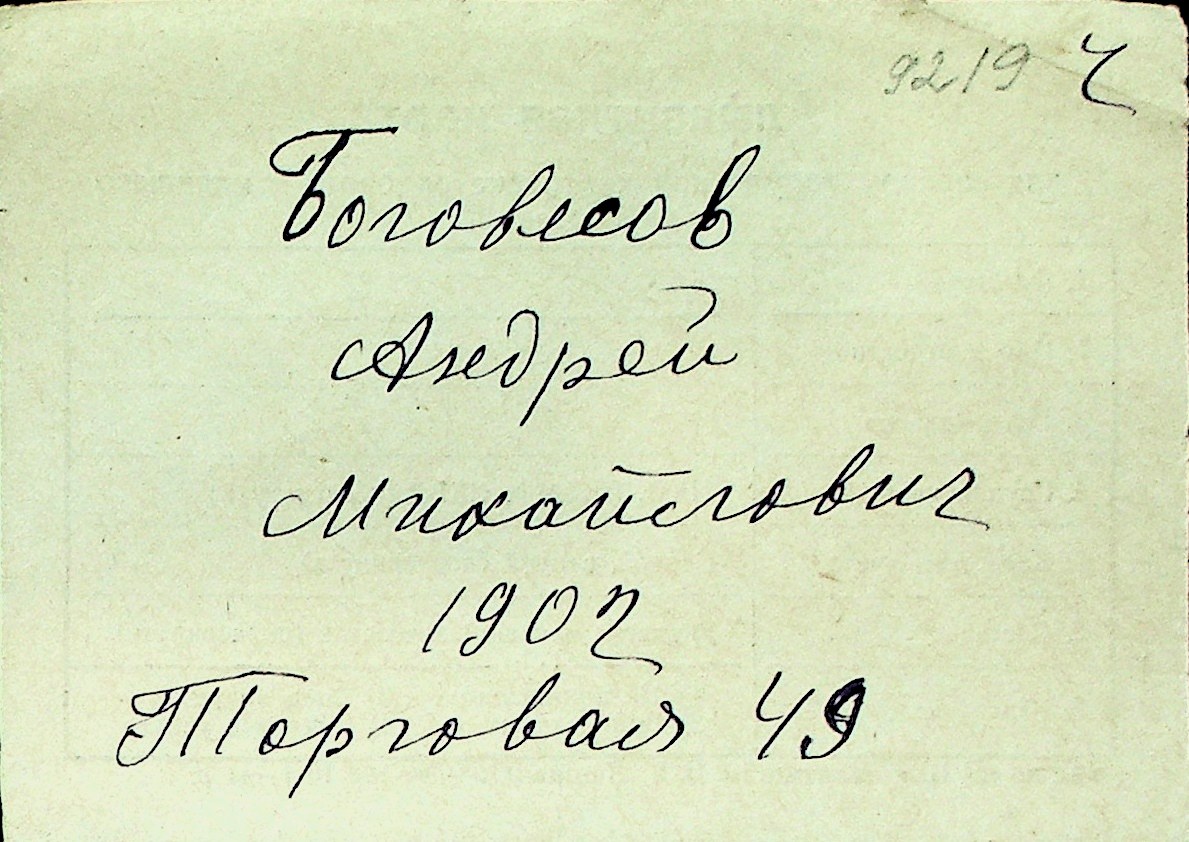 9219 Ч
Боговесов
Андрей
Михайлович
1902
Торговая 49